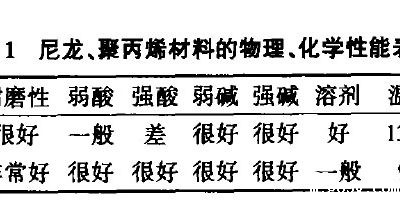 1 尼龙、聚丙烯材料的物理、化学性能
磨性 弱酸 强酸 弱碱 强碱 溶剂
很好 一般 差 很好 很好 好 1
常好 很好 很好 很好 很好 一般